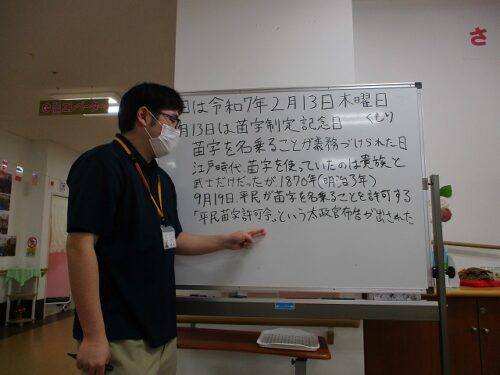 日は令和7年2月13日木曜日
くもり
月13日は苗字制定記念日
苗字を名乗ることが義務づけられた日
江戸時代 苗字を使っていたのは貴族と
武士だけだったが1870年(明治3年)
9月19日、平民が苗字を名乗ることを許可する
「平民苗字許可令」という太政官布告が出された
エレベーター
さ